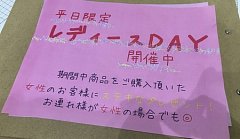 平日限定
レディースDAY
開催中
期間中商品をご購入頂いた
女性のお客様にステキなプレゼント!
お連れ様が女性の場合でも◎